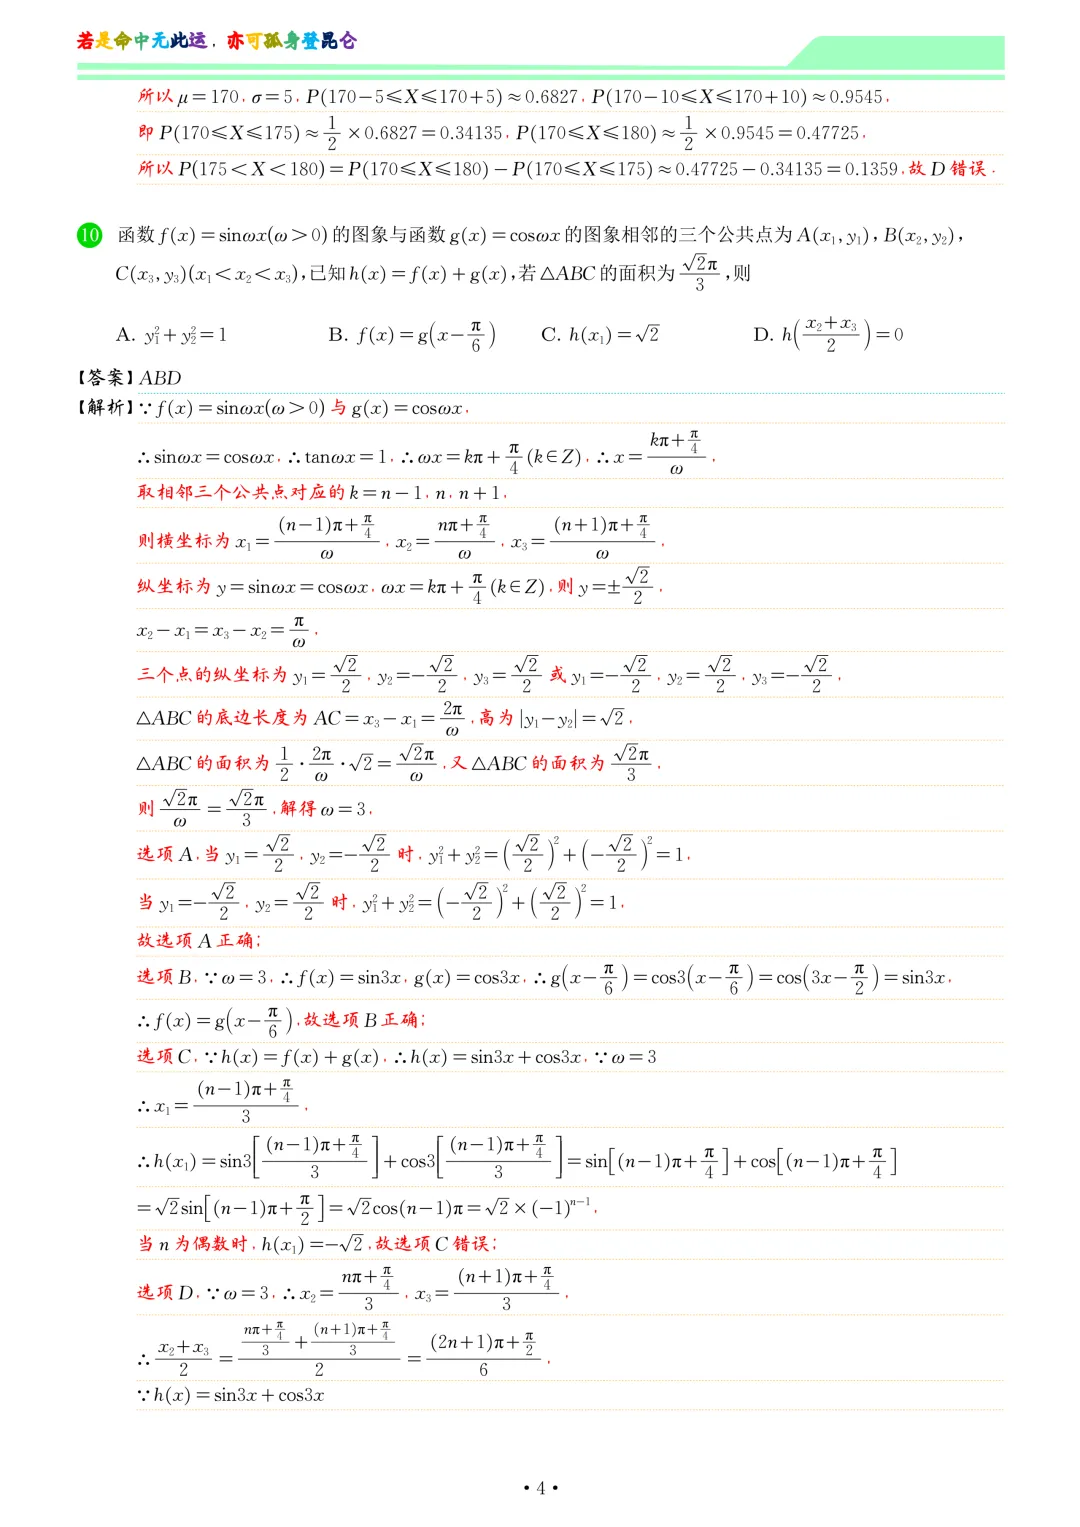 若是命中无此运，亦可孤身登昆仑
所以 μ=170，σ=5，P(170-5⩽X⩽170+5)≈0.6827，P(170-10⩽X⩽170+10)≈0.9545，
即 P(170⩽X⩽175)≈1/2×0.6827=0.34135，P(170⩽X⩽180)≈1/2×0.9545=0.47725，
所以 P(175<X<180)=P(170⩽X⩽180)-P(170⩽X⩽175)≈0.47725-0.34135=0.1359，故 D 错误．
10 函数 f(x)=sinωx(ω>0) 的图象与函数 g(x)=cosωx 的图象相邻的三个公共点为 A(x₁,y₁)，B(x₂,y₂)，
C(x₃,y₃)(x₁<x₂<x₃)，已知 h(x)=f(x)+g(x)，若 △ABC 的面积为 √2π/3，则
A. y₁²+y₂²=1 B. f(x)=g(x-π/6) C. h(x₁)=√2 D. h((x₂+x₃)/2)=0
【答案】ABD
【解析】∵f(x)=sinωx(ω>0) 与 g(x)=cosωx，
∴sinωx=cosωx，∴tanωx=1，∴ωx=kπ+π/4(k∈Z)，∴x=(kπ+π/4)/ω，
取相邻三个公共点对应的 k=n-1，n，n+1，
则横坐标为 x₁=((n-1)π+π/4)/ω，x₂=(nπ+π/4)/ω，x₃=((n+1)π+π/4)/ω，
纵坐标为 y=sinωx=cosωx，ωx=kπ+π/4(k∈Z)，则 y=±√2/2，
x₂-x₁=x₃-x₂=π/ω，
三个点的纵坐标为 y₁=√2/2，y₂=-√2/2，y₃=√2/2 或 y₁=-√2/2，y₂=√2/2，y₃=-√2/2，
△ABC 的底边长度为 AC=x₃-x₁=2π/ω，高为 |y₁-y₂|=√2，
△ABC 的面积为 1/2·2π/ω·√2=√2π/ω，又 △ABC 的面积为 √2π/3，
则 √2π/ω=√2π/3，解得 ω=3，
选项 A，当 y₁=√2/2，y₂=-√2/2 时，y₁²+y₂²=(√2/2)²+(-√2/2)²=1，
当 y₁=-√2/2，y₂=√2/2 时，y₁²+y₂²=(-√2/2)²+(√2/2)²=1，
故选项 A 正确；
选项 B，∵ω=3，∴f(x)=sin3x，g(x)=cos3x，∴g(x-π/6)=cos3(x-π/6)=cos(3x-π/2)=sin3x，
∴f(x)=g(x-π/6)，故选项 B 正确；
选项 C，∵h(x)=f(x)+g(x)，∴h(x)=sin3x+cos3x，∵ω=3
∴x₁=((n-1)π+π/4)/3，
∴h(x₁)=sin3[((n-1)π+π/4)/3]+cos3[((n-1)π+π/4)/3]=sin[(n-1)π+π/4]+cos[(n-1)π+π/4]
=√2sin[(n-1)π+π/2]=√2cos(n-1)π=√2×(-1)ⁿ⁻¹，
当 n 为偶数时，h(x₁)=-√2，故选项 C 错误；
选项 D，∵ω=3，∴x₂=(nπ+π/4)/3，x₃=((n+1)π+π/4)/3，
∴(x₂+x₃)/2=((nπ+π/4)/3+((n+1)π+π/4)/3)/2=((2n+1)π+π/2)/6，
∵h(x)=sin3x+cos3x
·4·